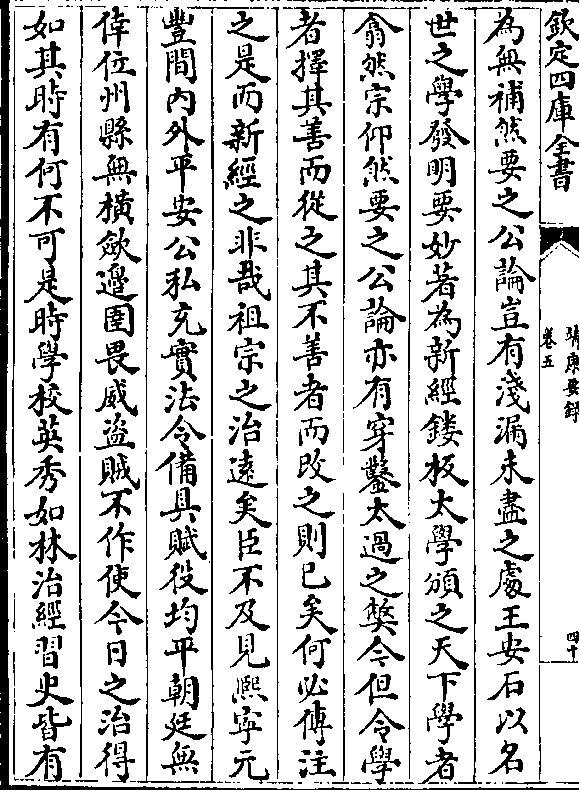 欽定四庫全書
靖康要錄
卷五
四十
為無補然要之公論豈有淺漏未盡之處王安石以名
世之學發明要妙著為新經鏤板太學頒之天下學者
翕然宗仰然要之公論亦有穿鑿太過之獘今但令學
者擇其善而從之其不善者而改之則已矣何必傳注
之是而新經之非哉祖宗之治遠矣臣不及見熈寧元
豐間內外平安公私充實法令備具賦役均平朝廷無
倖位州縣無橫歛邊圉畏威盜賊不作使今日之治得
如其時有何不可是時學校英秀如林治經習史皆有